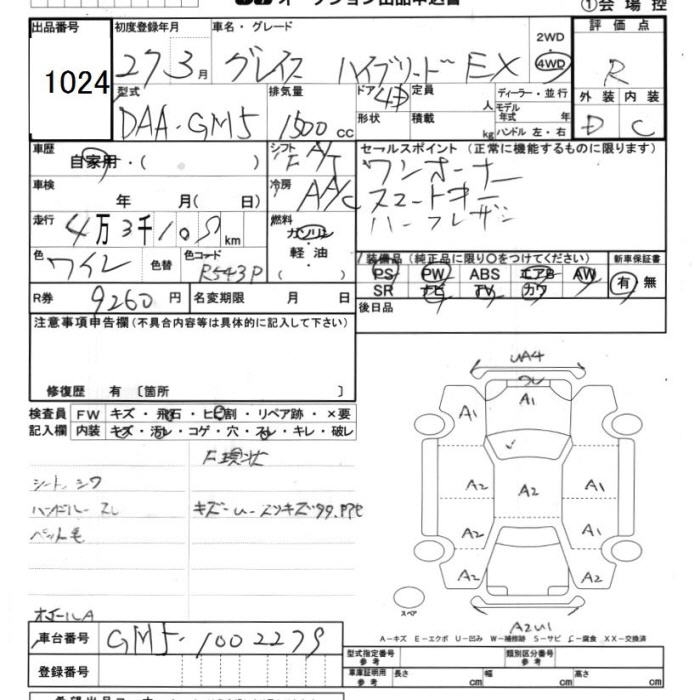 オークション出品申込書
①会場控
出品番号 1024
初度登録年月 27 3月
車名・グレード グレイス ハイブリッド EX
2WD 4WD
評価点 R
型式 DAA-GM5
排気量 1500 cc
ドア 4D 定員 人
形状 積載 kg
ディーラー・並行
モデル年式 年
ハンドル 左・右
外装 内装
D C
車歴 自家用・( )
シフト F A/T
セールスポイント (正常に機能するものに限ります)
ワンオーナー
スマートキー
ハーフレザー
車検 年 月( 日)
冷房 A/C
走行 4万3千 km
燃料 ガソリン
軽油
( )
色 ワイン 色替
色コード R543P
装備品 (純正品に限り○をつけてください)
新車保証書
PS PW ABS エアB AW
有 無
SR ナビ TV カワ
R券 9260円
名変期限 月 日
後日品
注意事項申告欄 (不具合内容等は具体的に記入して下さい)
修復歴 有 〔箇所 〕
検査員 FW キズ・飛石・ヒビ割・リペア跡・×要
記入欄 内装 キズ・汚レ・コゲ・穴・スレ・キレ・破レ
現状
シート シワ
ハンドル スレ
ペット毛
UA4
A1
A1 A1
A2 A2 A1
A2 A1
A2 A2
スペア
A2U1
A-キズ E-エクボ U-凹み W-補修跡 S-サビ C-腐食 XX-交換済
車台番号 GM5-1002279
登録番号
型式指定番号 参考
類別区分番号 参考
車庫証明用 参考 長さ cm 幅 cm 高さ cm